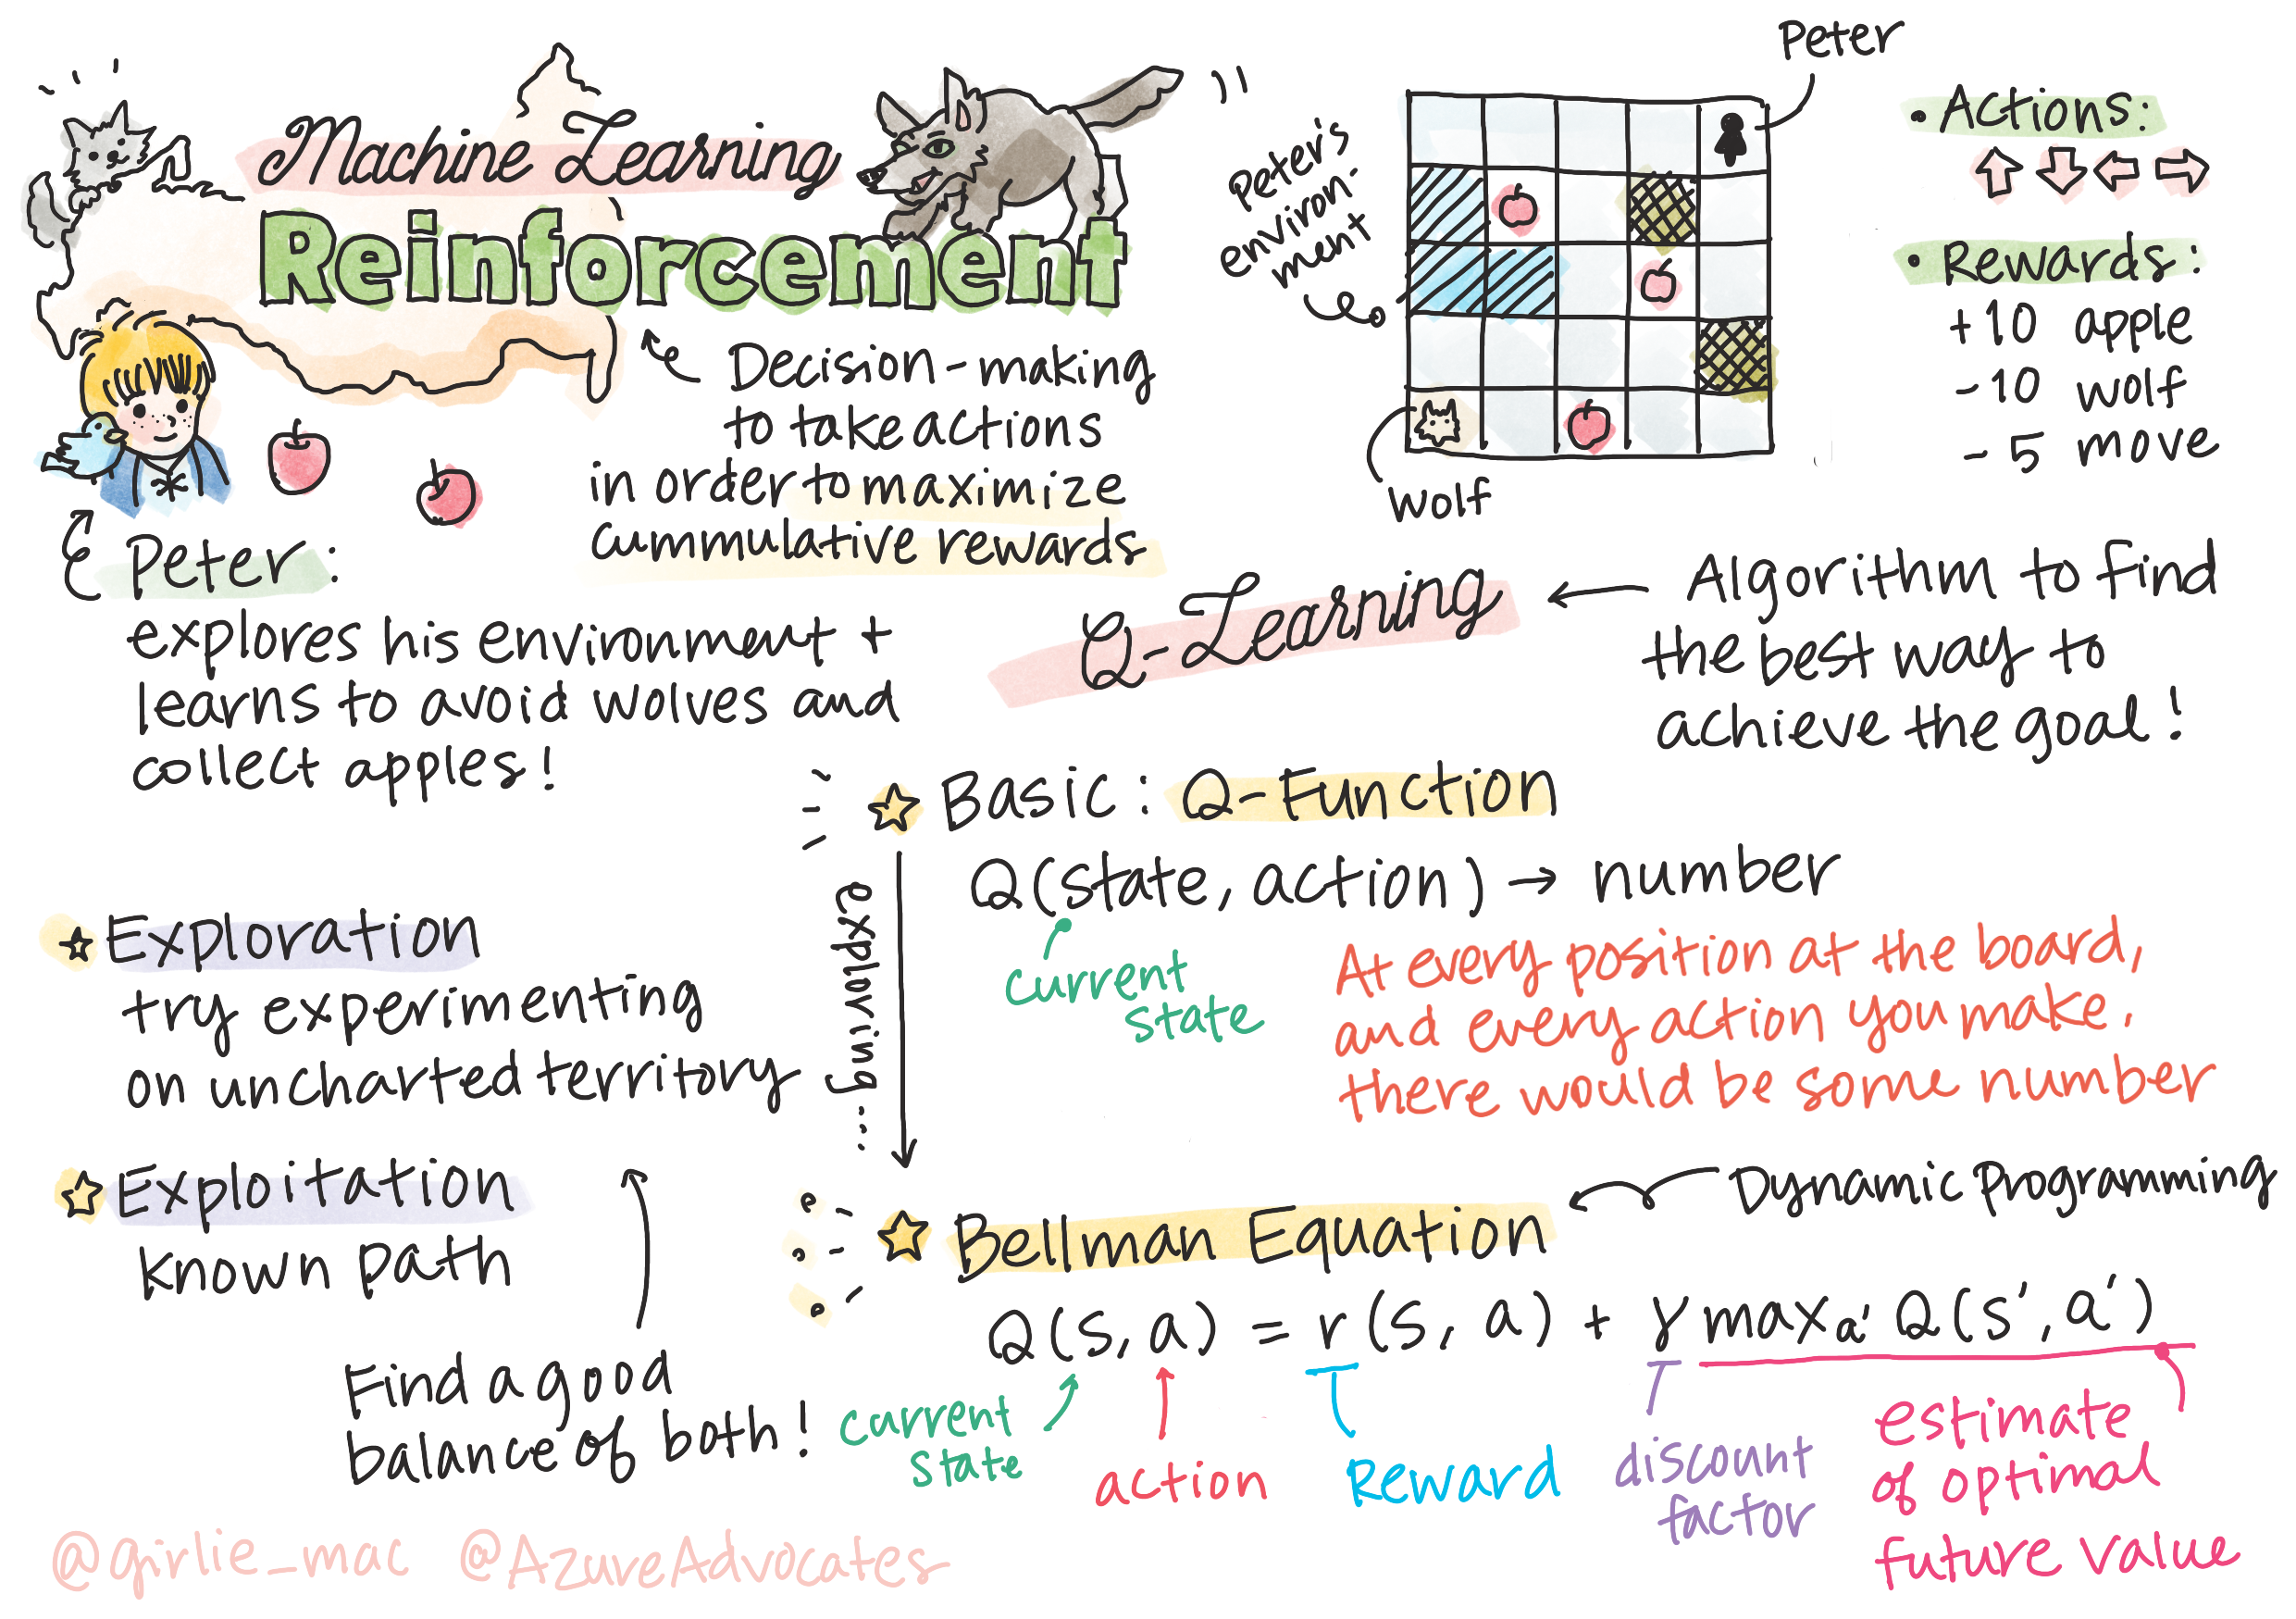 Machine Learning
Reinforcement
Decision-making
to take actions
in order to maximize
cummulative rewards
Peter:
explores his environment +
learns to avoid wolves and
collect apples!
Peter
Peter's
environ-
ment
Wolf
• Actions:
• Rewards:
+10 apple
-10 wolf
-5 move
Q-Learning
Algorithm to find
the best way to
achieve the goal!
Basic: Q-Function
Q(state, action) → number
current
state
At every position at the board,
and every action you make.
there would be some number
exploring....
Exploration
try experimenting
on uncharted territory
Exploitation
known path
Find a good
balance of both!
Bellman Equation
Dynamic Programming
Q(s, a) = r(s, a) + γ maxₐ' Q(s', a')
current
state
action
Reward
discount
factor
estimate
of optimal
future value
@girlie_mac @AzureAdvocates